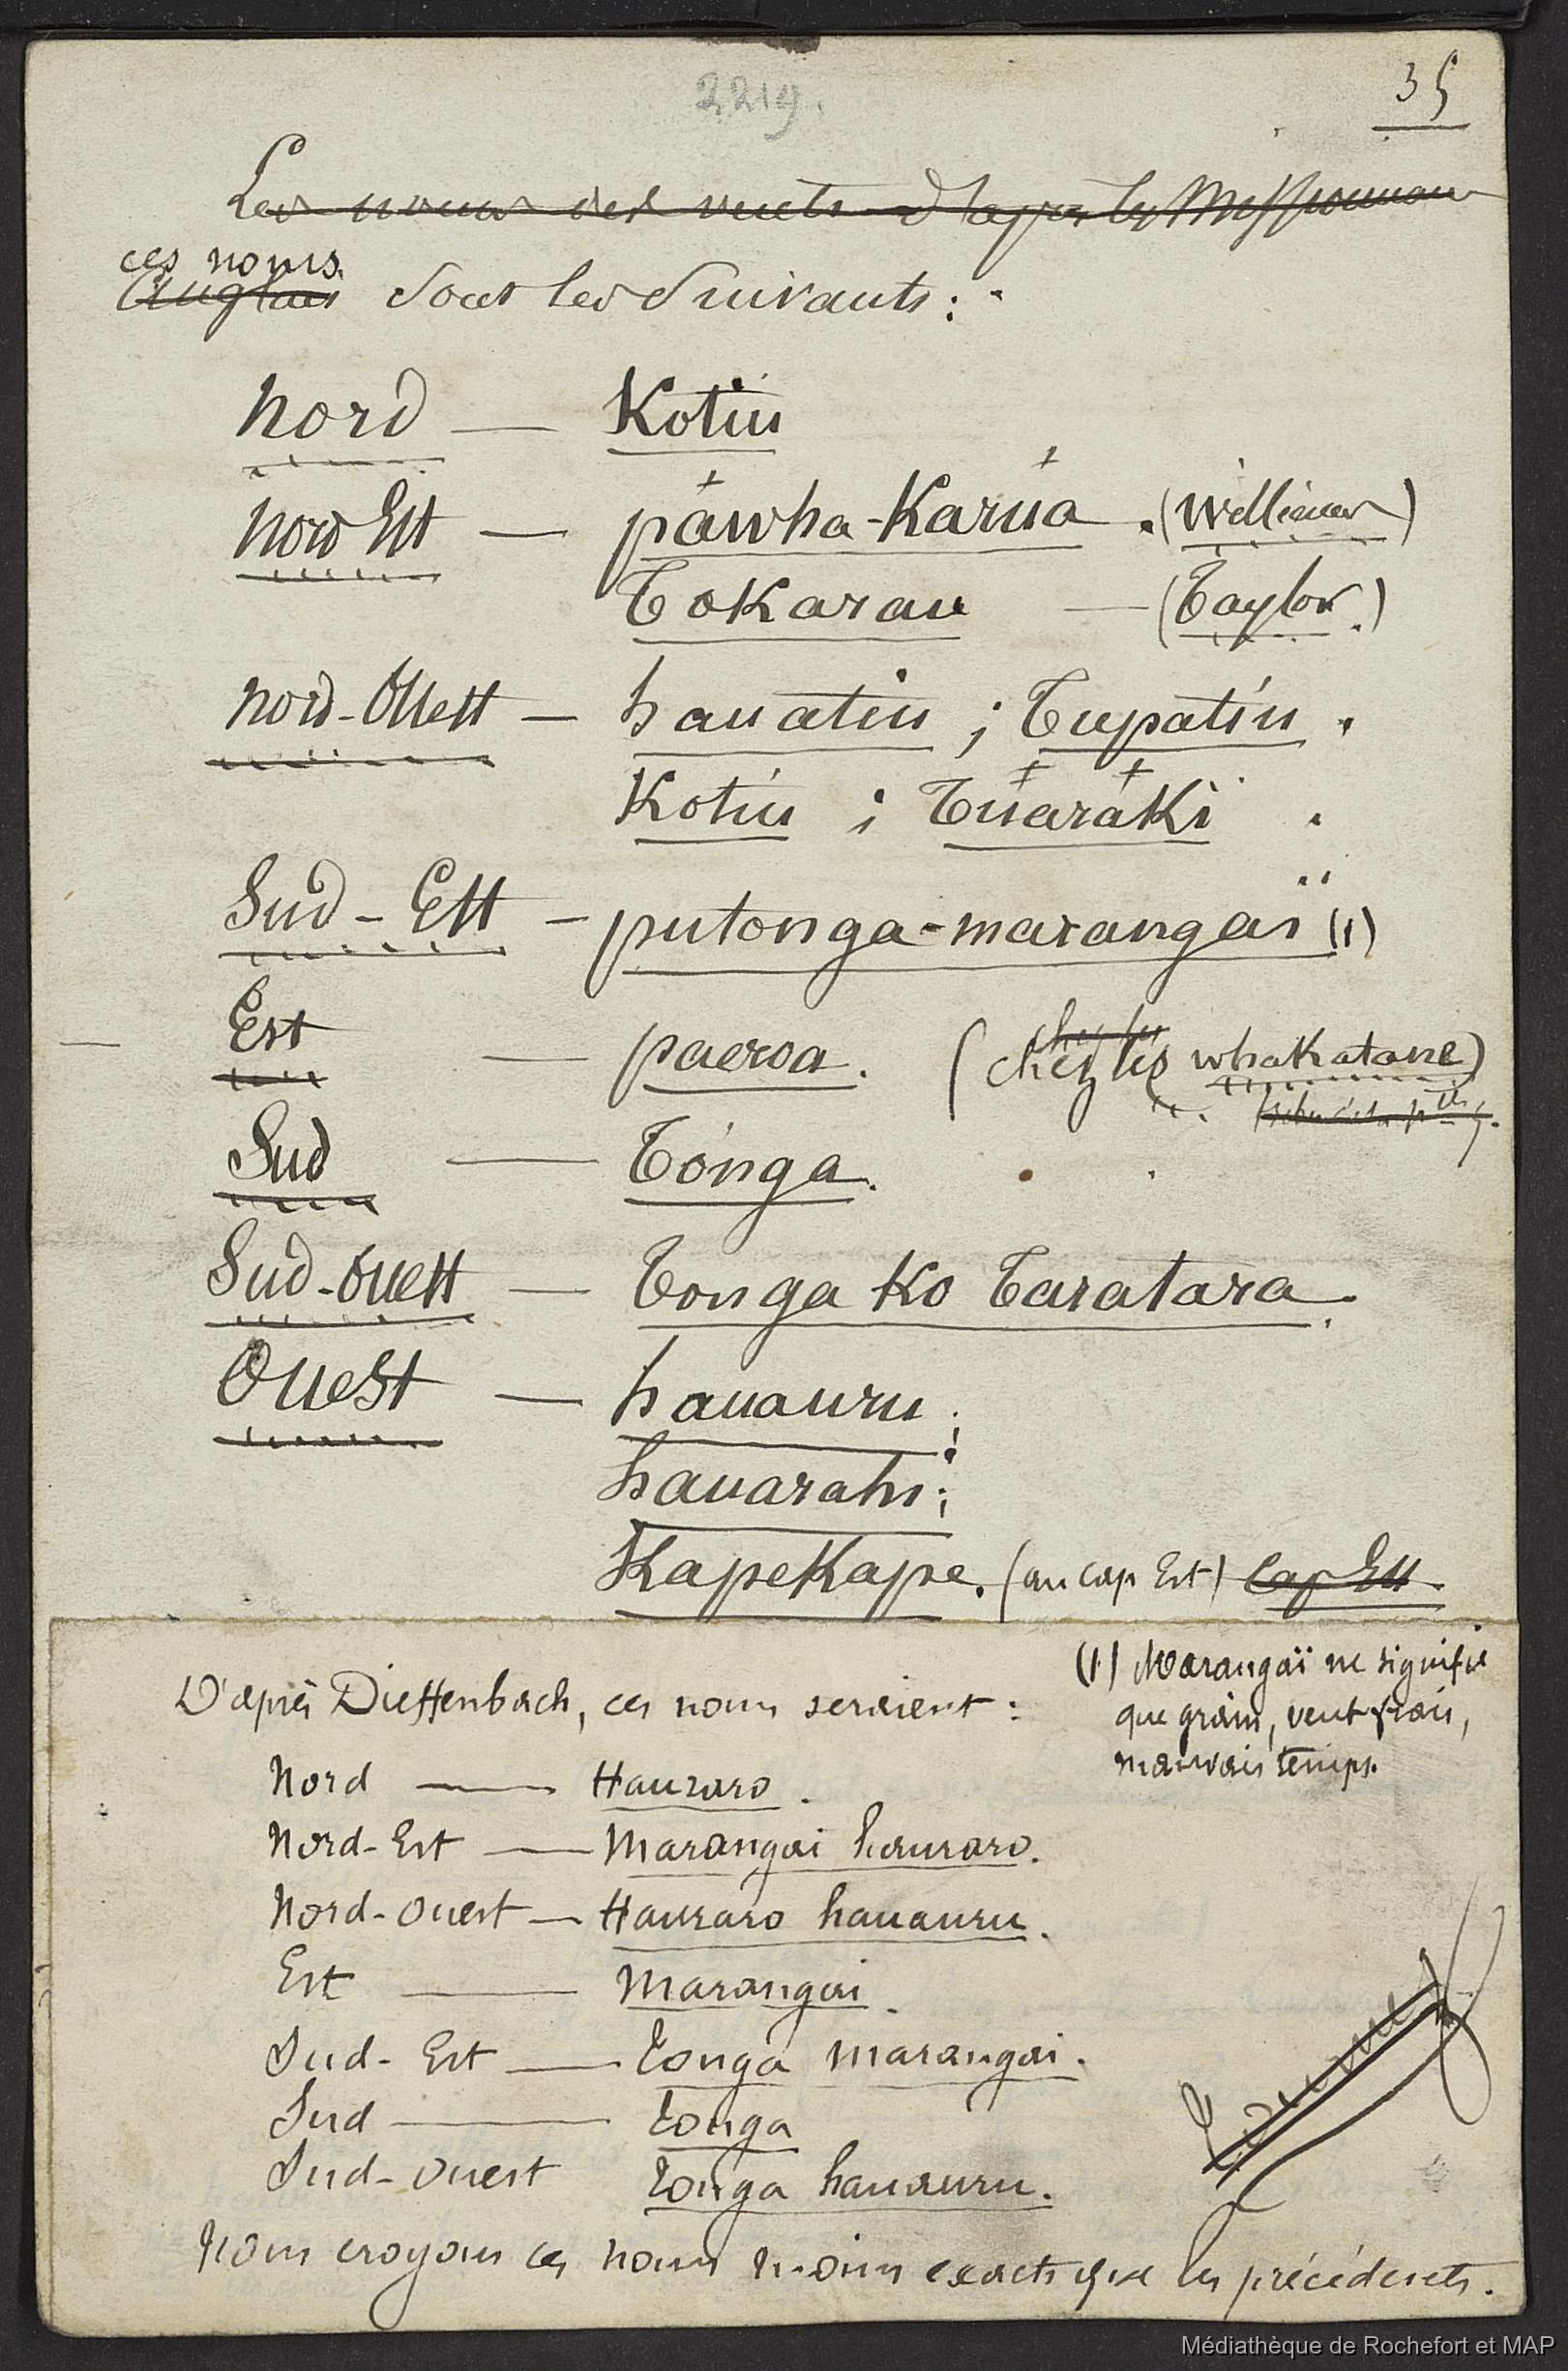 2219.
35
Les noms des vents d'après les Missionnaires
ces noms
Anglais sont les suivants :
Nord — Kotiu
Nord Est — páwha-Karúa . (Williams)
Tokarau — (Taylor.)
Nord-Ouest — hauatiu ; Tupatiu .
Kotiu ; Túaráki .
Sud-Est — putonga-marangaï (1)
Est — paeroa. (chez les whakatane)
Sud — Tónga.
Sud-Ouest — Tonga Ko Taratara.
Ouest — hauauru ;
hauarahi ;
KapeKape. (au cap Est) Cap Est.
D'après Dieffenbach, ces noms seraient :
(1) Marangaï ne signifie
que grain, vent frais,
mauvais temps.
Nord — Hauraro .
Nord-Est — Marangai hauraro.
Nord-Ouest — Hauraro hauauru.
Est — Marangai .
Sud-Est — Tonga marangai.
Sud — Tonga
Sud-Ouest Tonga hauauru.
Nous croyons ces noms moins exacts que les précédents.
Médiathèque de Rochefort et MAP